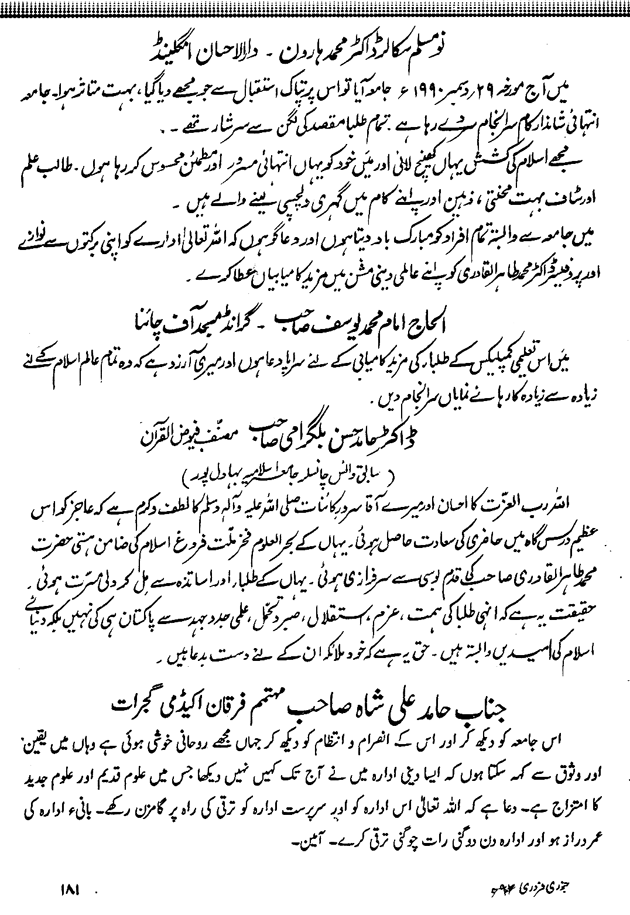 نو مسلم سکالر ڈاکٹر محمد ہارون ۔ دارالاحسان انگلینڈ
میں آج مورخہ ۲۹ دسمبر ۱۹۹۰ء جامعہ آیا تو اس پرتپاک استقبال سے جو مجھے دیا گیا، بہت متاثر ہوا۔ جامعہ
انتہائی شاندار کام سرانجام دے رہا ہے۔ تمام طلباء مقصد کی لگن سے سرشار تھے ۔۔
مجھے اسلام کی کشش یہاں کھینچ لائی اور میں خود کو یہاں انتہائی مسرور اور مطمئن محسوس کر رہا ہوں۔ طالب علم
اور سٹاف بہت محنتی، ذہین اور اپنے کام میں گہری دلچسپی لینے والے ہیں ۔
میں جامعہ سے وابستہ تمام افراد کو مبارک باد دیتا ہوں اور دعا گو ہوں کہ اللہ تعالیٰ ادارے کو اپنی برکتوں سے نوازے
اور پروفیسر ڈاکٹر محمد طاہر القادری کو اپنے عالمی دینی مشن میں مزید کامیابیاں عطا کرے ۔
الحاج امام محمد یوسف صاحب ۔ گرانڈ مسجد آف چائنا
میں اس تعلیمی کمپلیکس کے طلباء کی مزید کامیابی کے لئے سراپا دعا ہوں اور میری آرزو ہے کہ وہ تمام عالم اسلام کے لئے
زیادہ سے زیادہ کارہائے نمایاں سرانجام دیں ۔
ڈاکٹر سید حامد حسن بلگرامی صاحب مصنف فیوض القرآن
( سابق وائس چانسلر جامعہ اسلامیہ بہاولپور )
اللہ رب العزت کا احسان اور میرے آقا سرور کائنات صلی اللہ علیہ وآلہ وسلم کا لطف و کرم ہے کہ عاجز کو اس
عظیم درس گاہ میں حاضری کی سعادت حاصل ہوئی۔ یہاں کے بحر العلوم فخر ملت فروغ اسلام کی ضامن ہستی حضرت
محمد طاہر القادری صاحب کی قدم بوسی سے سرفرازی ہوئی۔ یہاں کے طلباء اور اساتذہ سے مل کر دلی مسرت ہوئی۔
حقیقت یہ ہے کہ انہی طلباء کی ہمت، عزم، استقلال، صبر و تحمل، علمی جدوجہد سے پاکستان ہی کی نہیں بلکہ دنیائے
اسلام کی امیدیں وابستہ ہیں ۔ حق یہ ہے کہ خود ملائکہ ان کے لئے دست بدعا ہیں ۔
جناب حامد علی شاہ صاحب مہتمم فرقان اکیڈمی گجرات
اس جامعہ کو دیکھ کر اور اس کے انصرام و انتظام کو دیکھ کر جہاں مجھے روحانی خوشی ہوئی ہے وہاں میں یقین
اور وثوق سے کہہ سکتا ہوں کہ ایسا دینی ادارہ میں نے آج تک کہیں نہیں دیکھا جس میں علوم قدیم اور علوم جدید
کا امتزاج ہے۔ دعا ہے کہ اللہ تعالیٰ اس ادارہ کو اور سرپرست ادارہ کو ترقی کی راہ پر گامزن رکھے۔ بانیء ادارہ کی
عمر دراز ہو اور ادارہ دن دوگنی رات چوگنی ترقی کرے۔ آمین۔
جنوری فروری ۹۴ء
۱۸۱